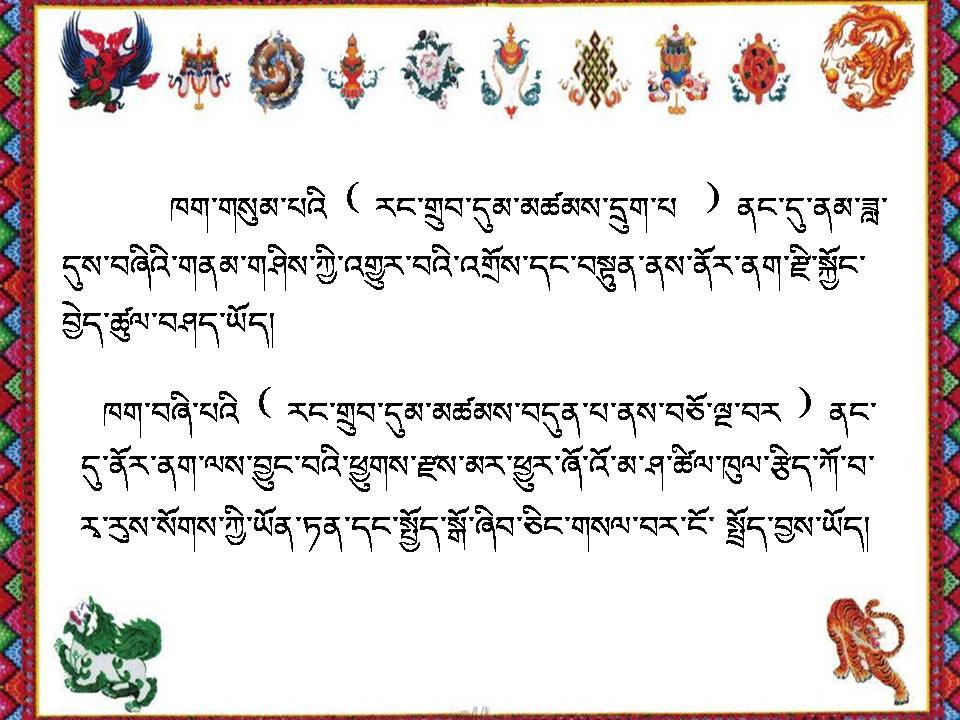 ཁག་གསུམ་པའི ( རང་གྲུབ་དུམ་མཚམས་དྲུག་པ ) ནང་དུ་ནམ་ཟླ་
དུས་བཞིའི་གནམ་གཤིས་ཀྱི་འགྱུར་བའི་འགྲོས་དང་བསྟུན་ནས་ནོར་ནག་རྫི་སྐྱོང་
བྱེད་ཚུལ་བཤད་ཡོད།
ཁག་བཞི་པའི ( རང་གྲུབ་དུམ་མཚམས་བདུན་པ་ནས་བཅོ་ལྔ་བར ) ནང་
དུ་ནོར་ནག་ལས་བྱུང་བའི་ཕྱུགས་རྫས་མར་ཕྱུར་ཞོ་འོ་མ་ཤ་ཚིལ་ཁུལ་རྩིད་ཀོ་བ་
རྭ་རུས་སོགས་ཀྱི་ཡོན་ཏན་དང་སྤྱོད་སྒོ་ཞིབ་ཅིང་གསལ་བར་ངོ་ སྤྲོད་བྱས་ཡོད།